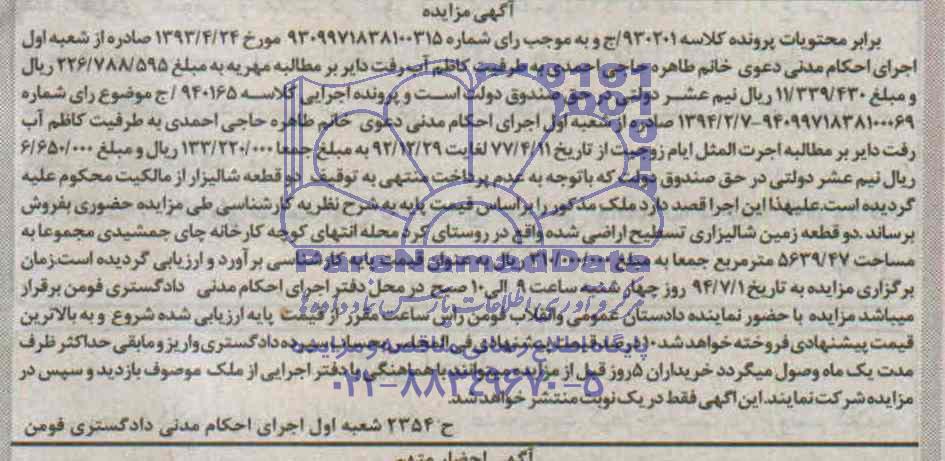 آگهی مزایده
برابر محتویات پرونده کلاسه ۹۳۰۲۰۱/ج و به موجب رای شماره ۹۳۰۹۹۷۱۸۳۸۱۰۰۳۱۵ مورخ ۱۳۹۳/۴/۲۴ صادره از شعبه اول
اجرای احکام مدنی دعوی خانم طاهره حاجی احمدی به طرفیت کاظم آب رفت دایر بر مطالبه مهریه به مبلغ ۲۲۶/۷۸۸/۵۹۵ ریال
و مبلغ ۱۱/۳۳۹/۴۳۰ ریال نیم عشر دولتی در حق صندوق دولت است و پرونده اجرایی کلاسه ۹۴۰۱۶۵ /ج موضوع رای شماره
۹۴۰۹۹۷۱۸۳۸۱۰۰۰۶۹-۱۳۹۴/۲/۷ صادره از شعبه اول اجرای احکام مدنی دعوی خانم طاهره حاجی احمدی به طرفیت کاظم آب
رفت دایر بر مطالبه اجرت المثل ایام زوجیت از تاریخ ۷۷/۴/۱۱ لغایت ۹۲/۱۲/۲۹ به مبلغ جمعا ۱۳۳/۲۲۰/۰۰۰ ریال و مبلغ ۶/۶۵۰/۰۰۰
ریال نیم عشر دولتی در حق صندوق دولت که باتوجه به عدم پرداخت منتهی به توقیف دو قطعه شالیزار از مالکیت محکوم علیه
گردیده است.علیهذا این اجرا قصد دارد ملک مذکور را براساس قیمت پایه به شرح نظریه کارشناسی طی مزایده حضوری بفروش
برساند .دو قطعه زمین شالیزاری تسطیح اراضی شده واقع در روستای کرد محله انتهای کوچه کارخانه چای جمشیدی مجموعا به
مساحت ۵۶۳۹/۴۷ مترمربع جمعا به مبلغ ریال به عنوان قیمت پایه کارشناسی برآورد و ارزیابی گردیده است.زمان
برگزاری مزایده به تاریخ ۹۴/۷/۱ روز چهار شنبه ساعت ۹ الی ۱۰ صبح در محل دفتر اجرای احکام مدنی دادگستری فومن برقرار
میباشد مزایده با حضور نماینده دادستان عمومی وانقلاب فومن راس ساعت مقرر از قیمت پایه ارزیابی شده شروع و به بالاترین
قیمت پیشنهادی فروخته خواهد شد ۱۰ درصد قیمت پیشنهادی فی المجلس به حساب سپرده دادگستری واریز و مابقی حداکثر ظرف
مدت یک ماه وصول میگردد خریداران ۵روز قبل از مزایده میتوانند با هماهنگی با دفتر اجرایی از ملک موصوف بازدید و سپس در
مزایده شرکت نمایند. این آگهی فقط در یک نوبت منتشر خواهد شد.
ح ۲۳۵۴ شعبه اول اجرای احکام مدنی دادگستری فومن
آگهی احضار متهم
ParsNamadData
مرکز فرآوری اطلاعات پارس نماد داده ها
پایگاه اطلاع رسانی مناقصه و مزایده
۰۲۱-۸۸۳۴۹۶۷۰-۵